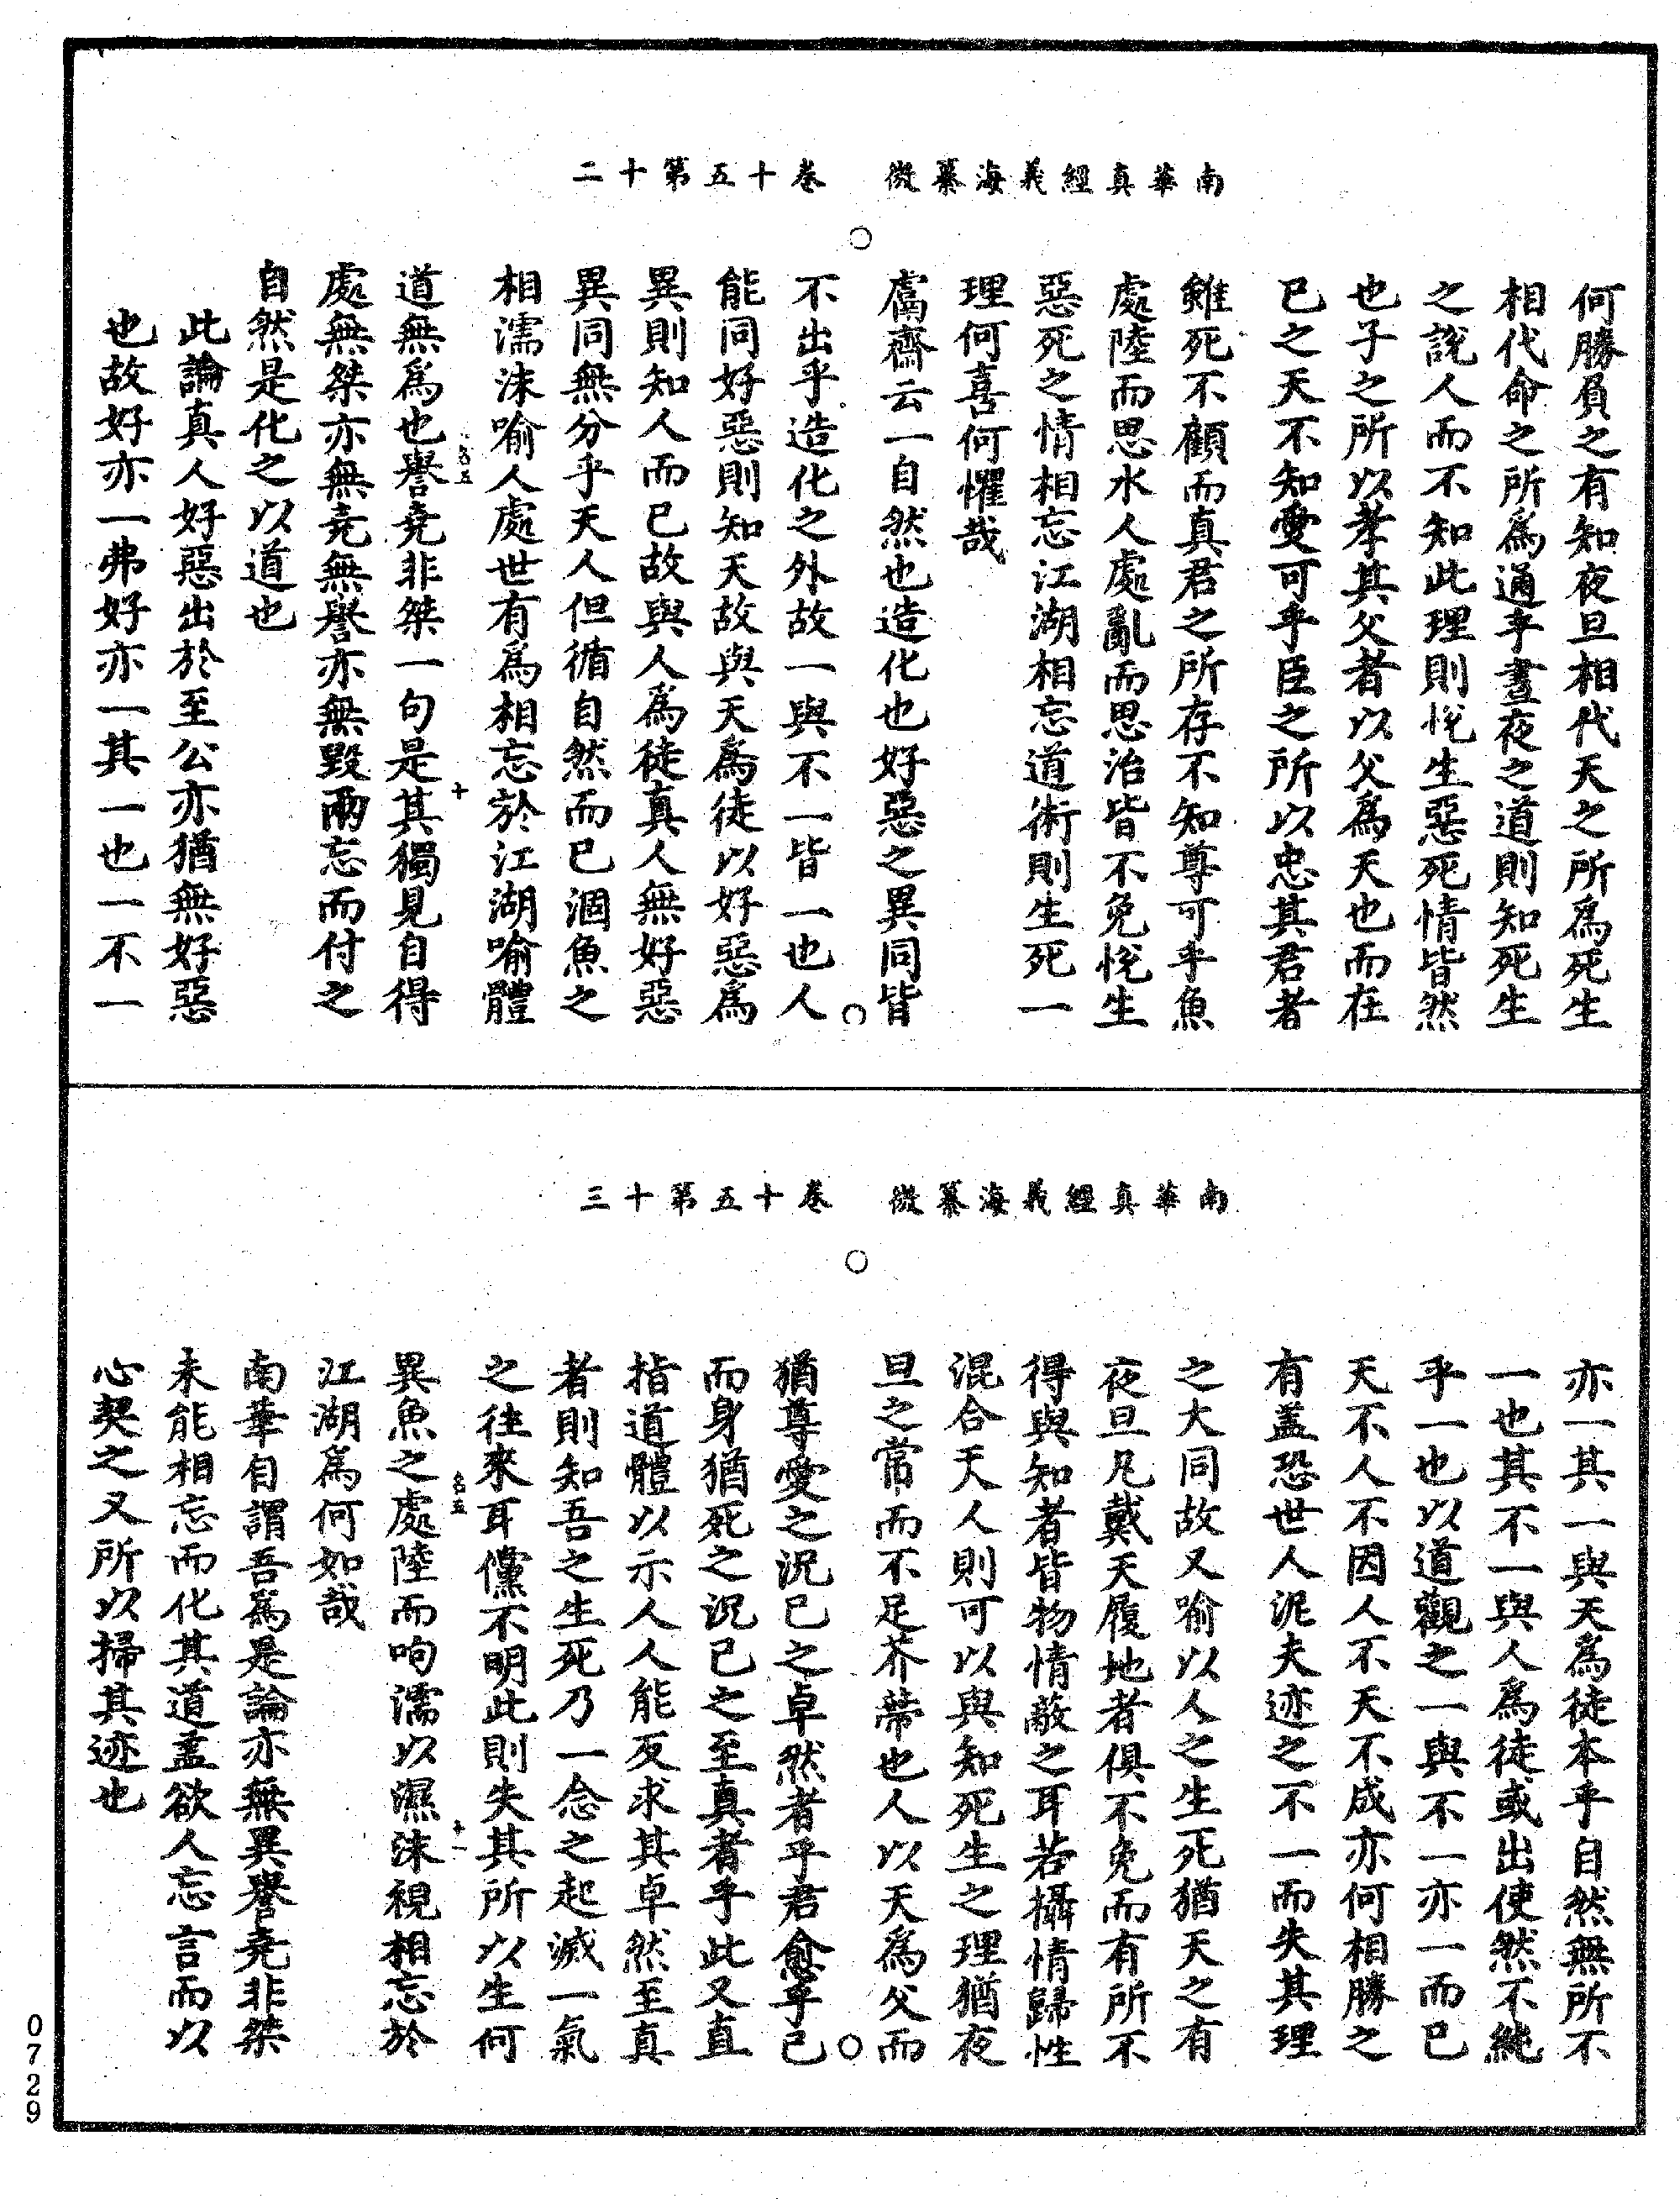 南華真經義海纂微　卷十五第十二
何勝負之有知夜旦相代天之所爲死生
相代命之所爲通乎晝夜之道則知死生
之說人而不知此理則悅生惡死情皆然
也子之所以孝其父者以父爲天也而在
已之天不知愛可乎臣之所以忠其君者
雖死不顧而真君之所存不知尊可乎魚
處陸而思水人處亂而思治皆不免悅生
惡死之情相忘江湖相忘道術則生死一
理何喜何懼哉
鬳齋云一自然也造化也好惡之異同皆
不出乎造化之外故一與不一皆一也人
能同好惡則知天故與天爲徒以好惡爲
異則知人而已故與人爲徒真人無好惡
異同無分乎天人但循自然而已涸魚之
相濡沫喻人處世有爲相忘於江湖喻體
道無爲也譽堯非桀一句是其獨見自得
處無桀亦無堯無譽亦無毀兩忘而付之
自然是化之以道也
此論真人好惡出於至公亦猶無好惡
也故好亦一弗好亦一其一也一不一
十
南華真經義海纂微　卷十五第十三
亦一其一與天爲徒本乎自然無所不
一也其不一與人爲徒或出使然不純
乎一也以道觀之一與不一亦一而已
天不人不因人不天不成亦何相勝之
有盖恐世人泥夫迹之不一而失其理
之大同故又喻以人之生死猶天之有
夜旦凡戴天履地者俱不免而有所不
得與知者皆物情蔽之耳若攝情歸性
混合天人則可以與知死生之理猶夜
旦之常而不足芥蔕也人以天爲父而
猶尊愛之況已之卓然者乎君愈乎已
而身猶死之況已之至真者乎此又直
指道體以示人人能反求其卓然至真
者則知吾之生死乃一念之起滅一氣
之往來耳儻不明此則失其所以生何
異魚之處陸而呴濡以濕沫視相忘於
江湖爲何如哉
南華自謂吾爲是論亦無異譽堯非桀
未能相忘而化其道盖欲人忘言而以
心契之又所以掃其迹也
十一
0729